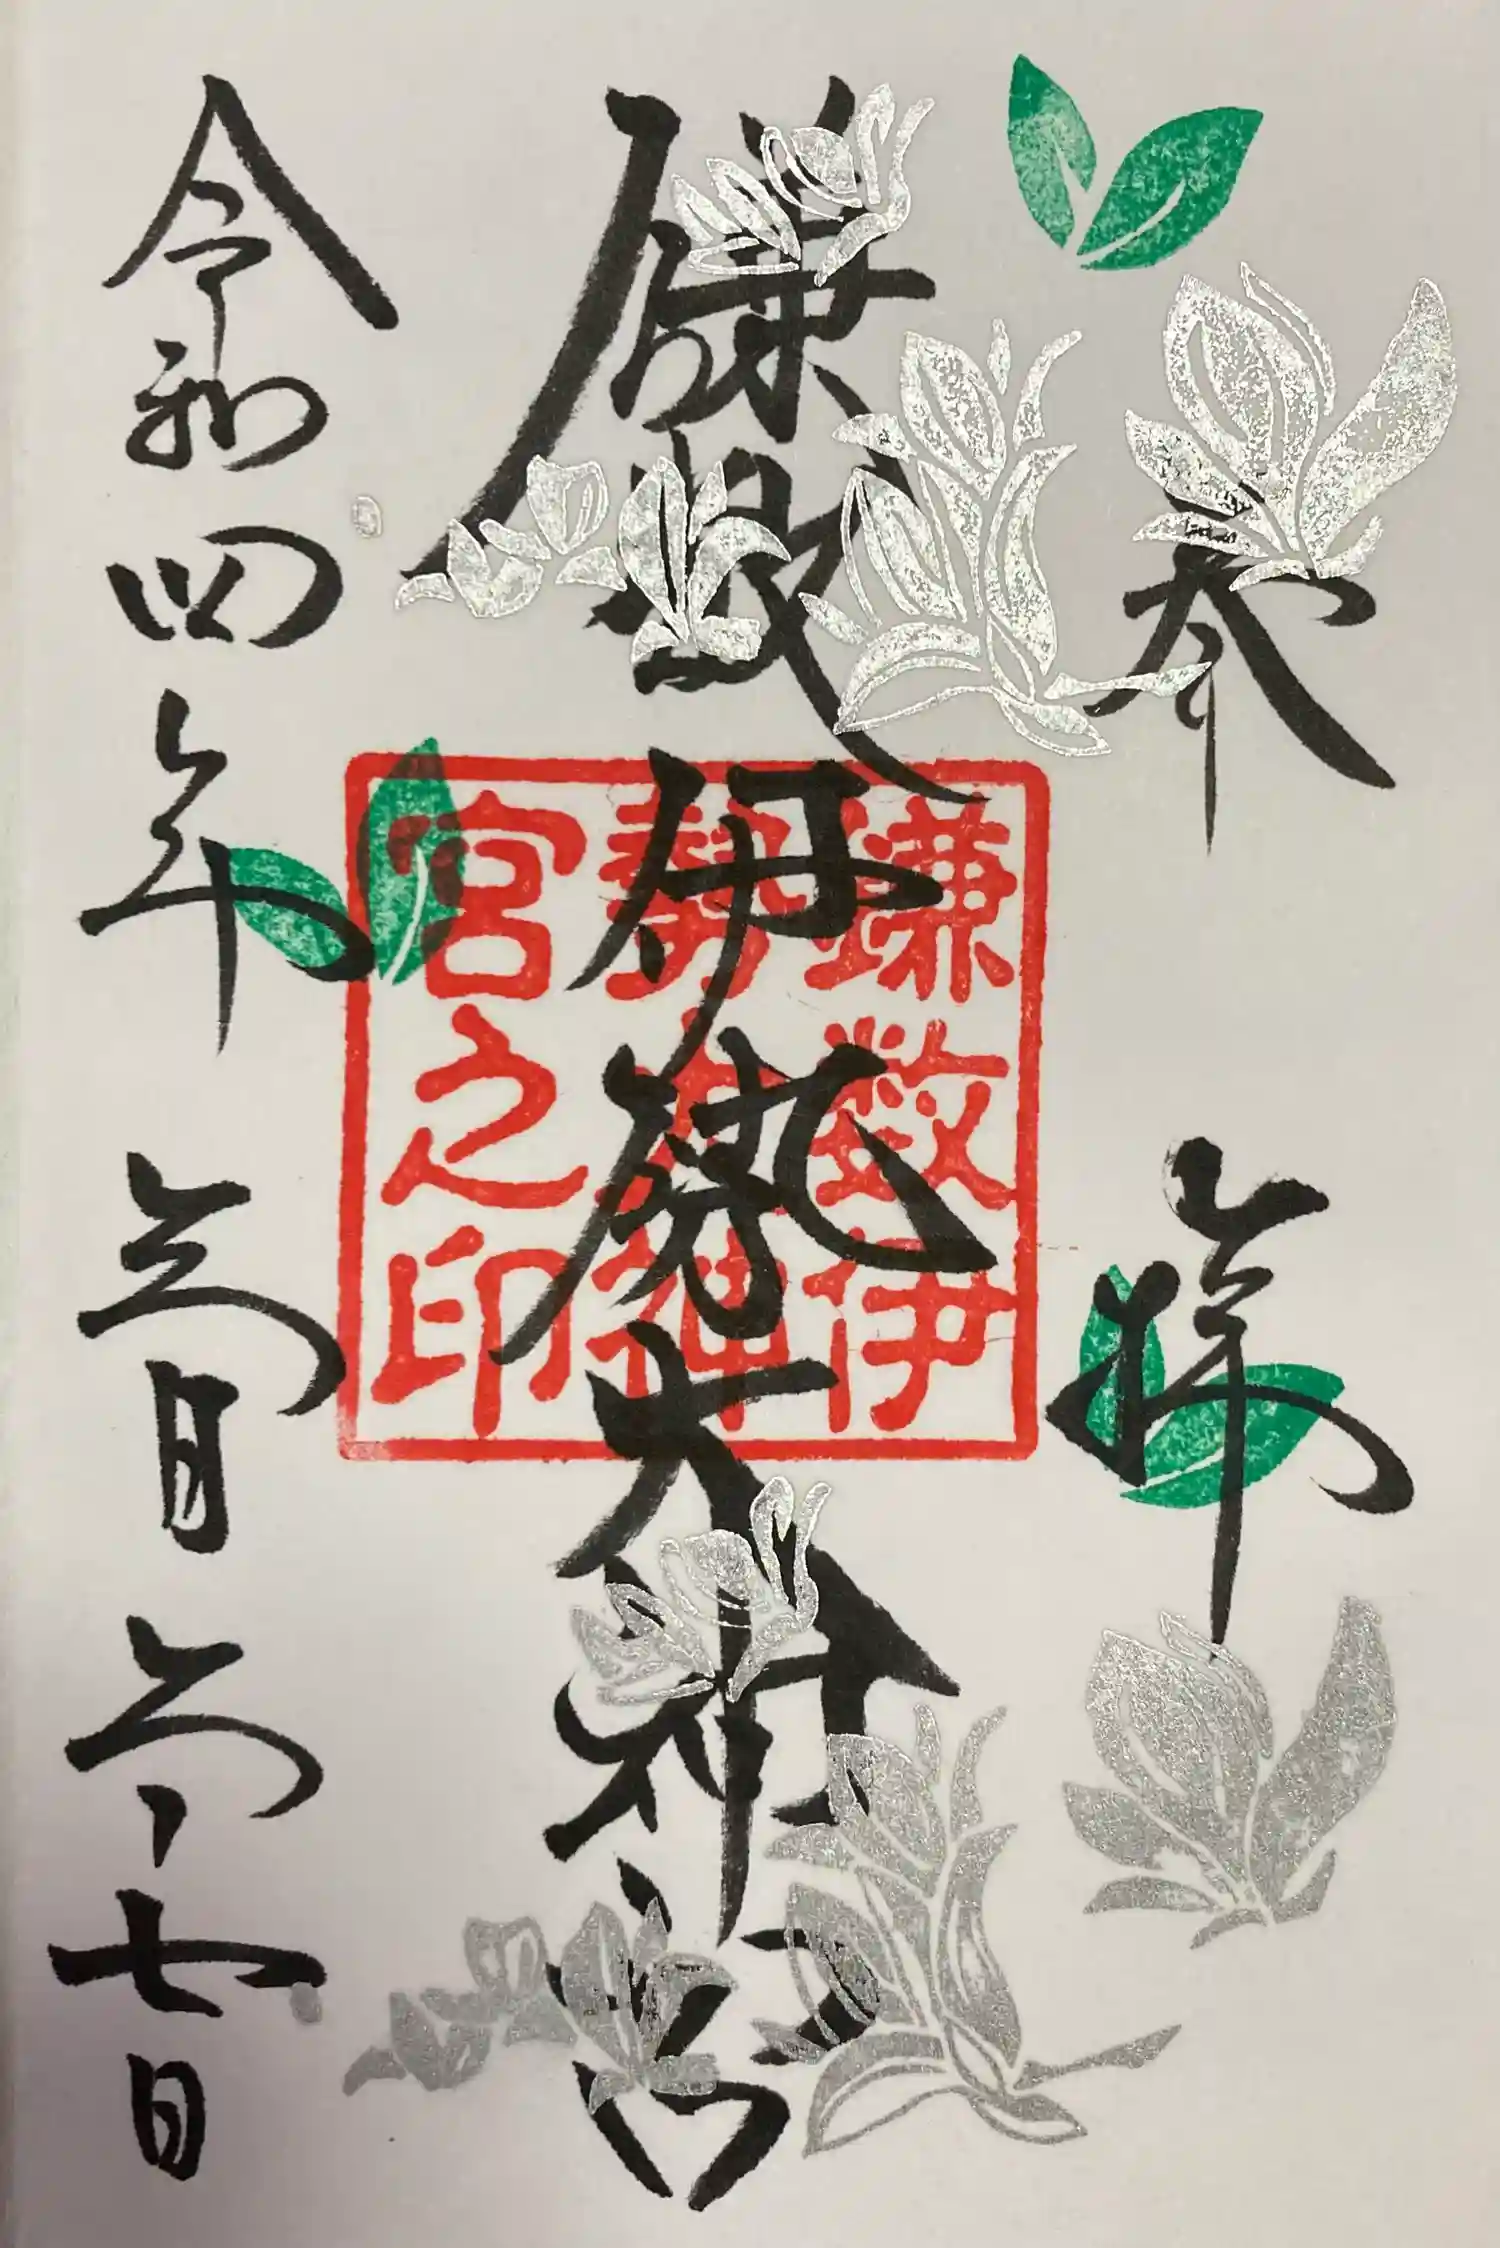 奉拝
鎌数伊勢大神宮
鎌数伊
勢大神
宮之印
令和四年 月 七日